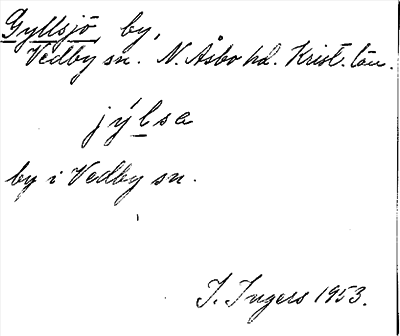 Gyllsjö, by,
Vedby sn. N. Åsbo hd. Krist. län.
jýlsa
by i Vedby sn.
I. Ingers 1953.